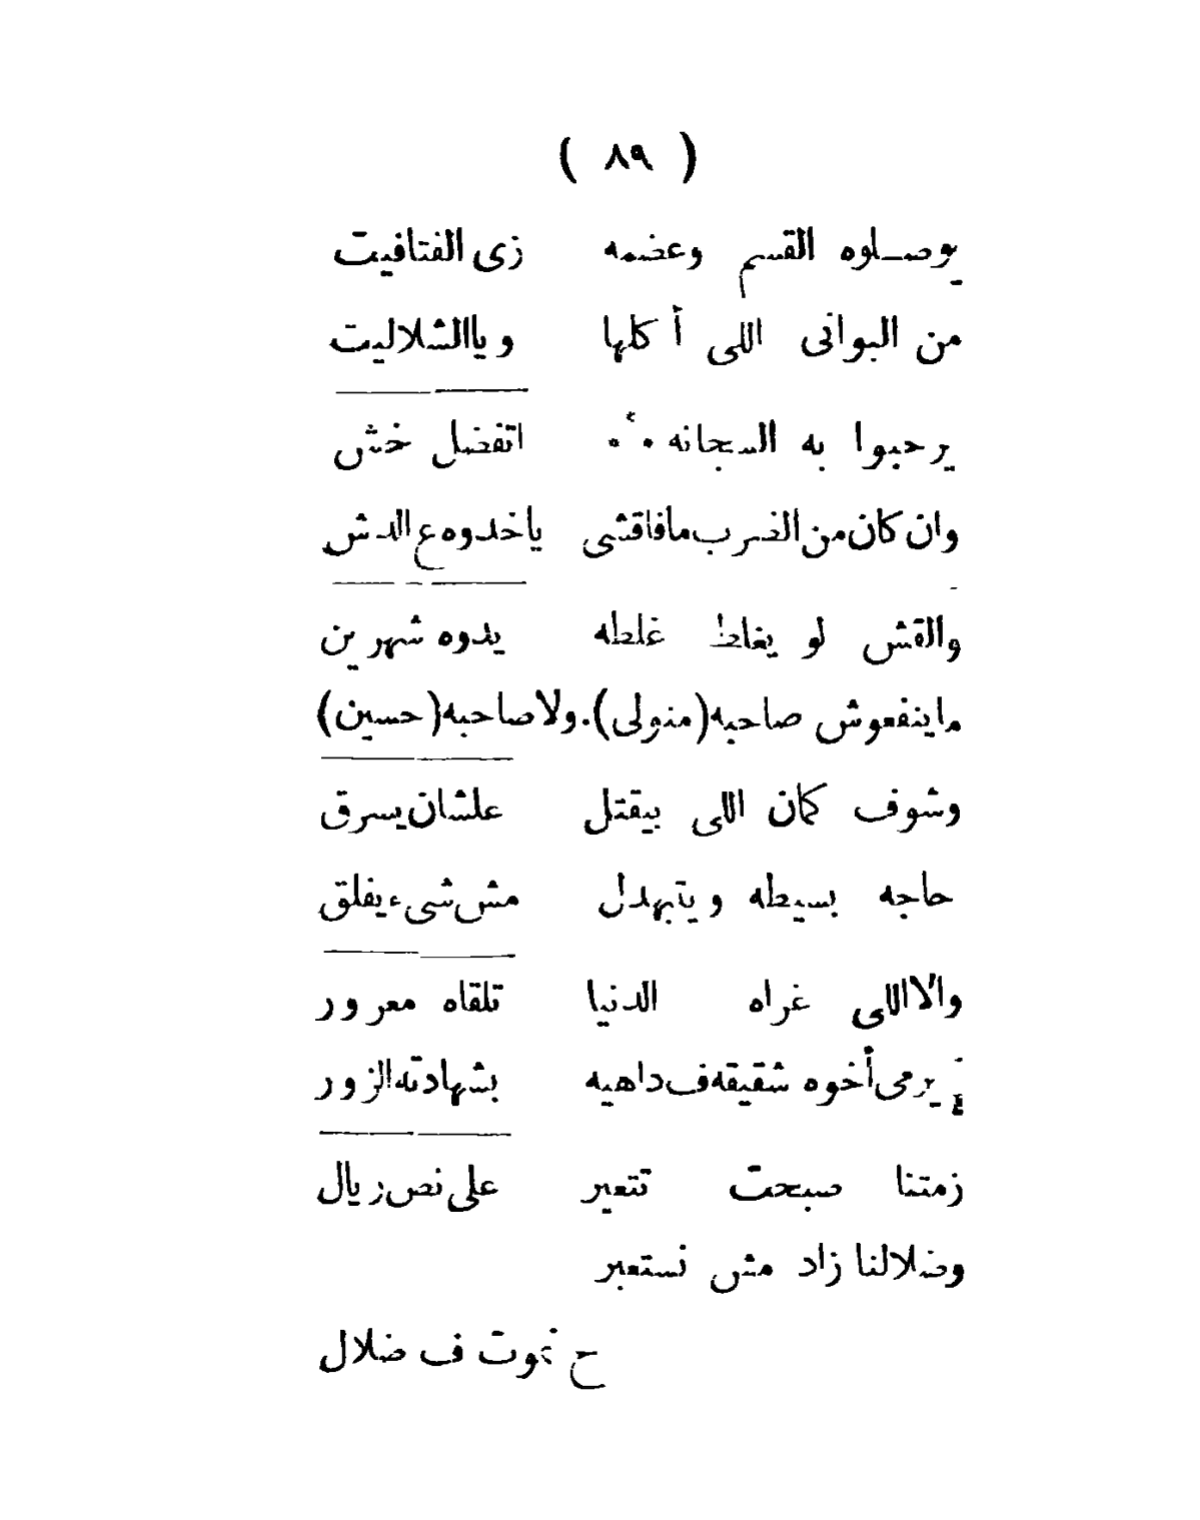 ( ٨٩ )
يوصلوه القسم وعضمه زى الفتافيت
من البوانى اللى أكلها وياالشلاليت
يرحبوا به السجانه اتفضل خش
وان كان من الضرب مافاقشى ياخدوه ع الدش
والقش لو يغلط غلطه يدوه شهرين
ماينفعوش صاحبه (متولى). ولا صاحبه (حسين)
وشوف كمان اللى بيقتل علشان يسرق
حاجه بسيطه ويتبهدل مش شىء يفلق
والا اللى غراه الدنيا تلقاه معرور
يرمى أخوه شقيقه ف داهيه بشهادته الزور
زمتنا صبحت تتعير على نص ريال
وضلالنا زاد مش نستعبر
ح نموت ف ضلال